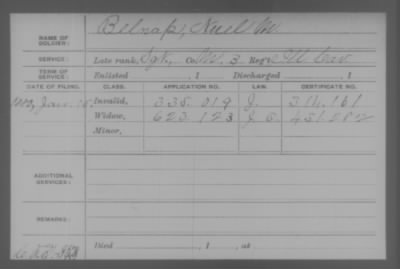 NAME OF SOLDIER: Belnap, Nuel M.
SERVICE: Late rank, Sgt., Co. M, 3 Reg't Ill Cav.
TERM OF SERVICE: Enlisted , 1 Discharged , 1
DATE OF FILING. CLASS. APPLICATION NO. LAW. CERTIFICATE NO.
Jan. Invalid, 335.019 J. 314.161
Widow, 623.123
Minor,
ADDITIONAL SERVICES:
REMARKS:
Died , 1 , at